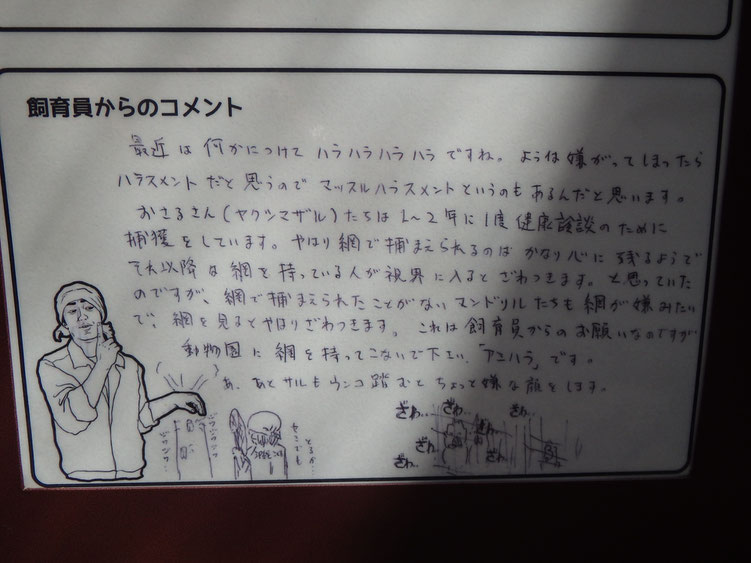 飼育員からのコメント
最近は何かにつけてハラハラハラハラですね。ようは嫌がってしまったら
ハラスメントだと思うのでマッスルハラスメントというのもあるんだと思います。
おさるさん(ヤクシマザル)たちは1〜2年に1度健康診談のために
捕獲をしています。やはり網で捕まえられるのはかなり心に残るようで
それ以降は網を持っている人が視界に入るとざわつきます。と思っていた
のですが、網で捕まえられたことがないマンドリルたちも網が嫌みたい
で、網を見るとやはりざわつきます。これは飼育員からのお願いなのですが
動物園に網を持ってこないで下さい、「アミハラ」です。
あ、あとサルもウンコ踏むとちょっと嫌な顔をします。
ざわ‥ ざわ‥ ざわ‥
ざわ‥ ざわ‥
ざわ‥